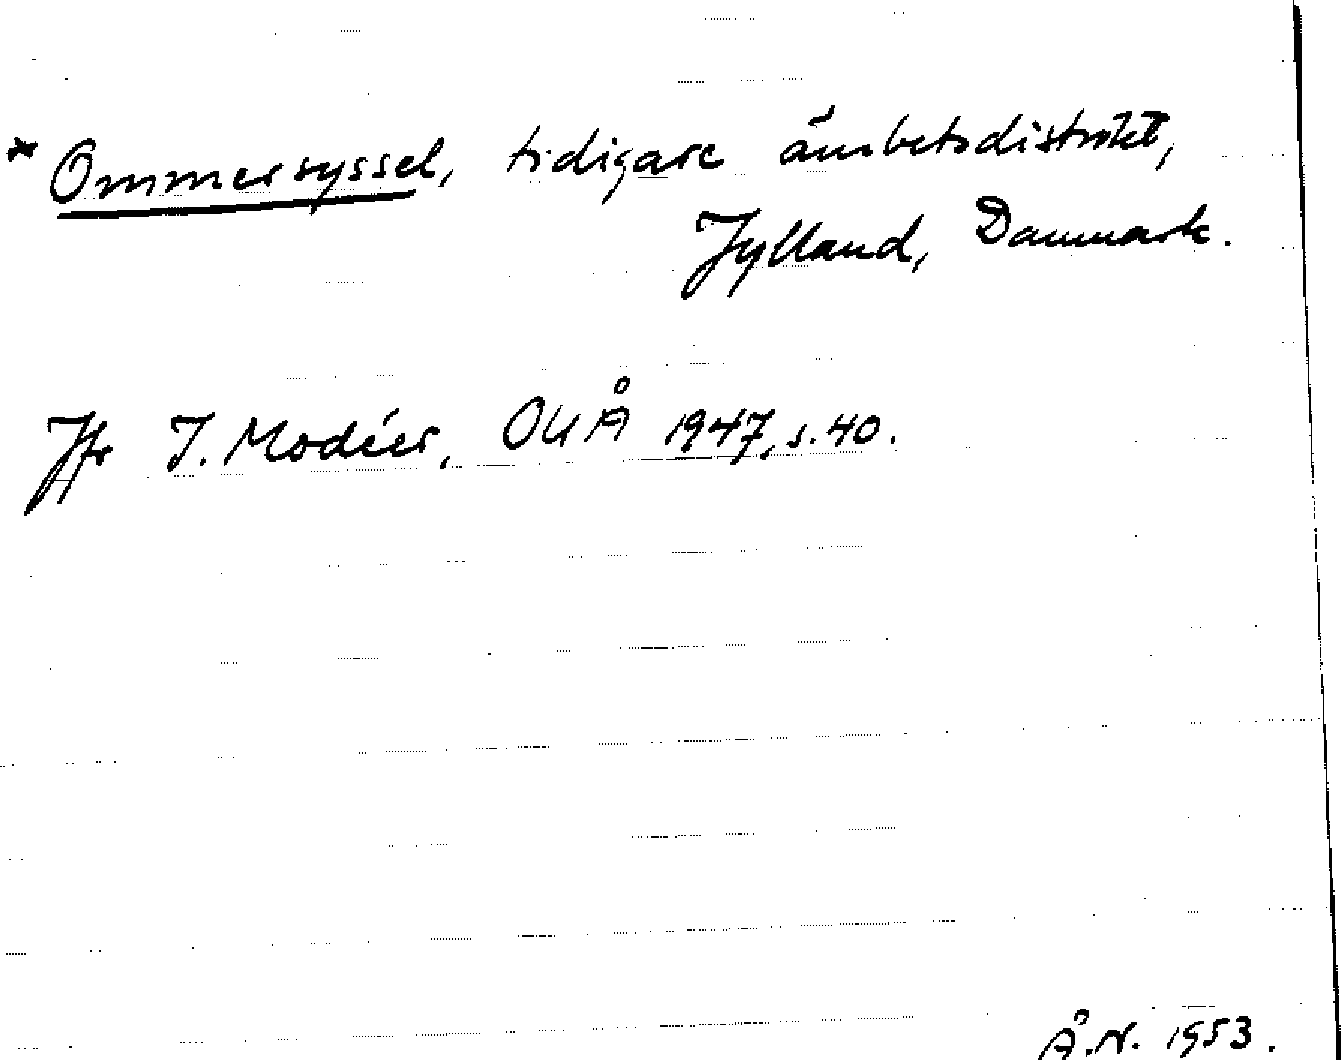 * Ommersyssel, tidigare ämbetsdistrikt,
Jylland, Danmark.
Jfr I. Modéer, OUÅ 1947, s. 40.
Å.N. 1953.